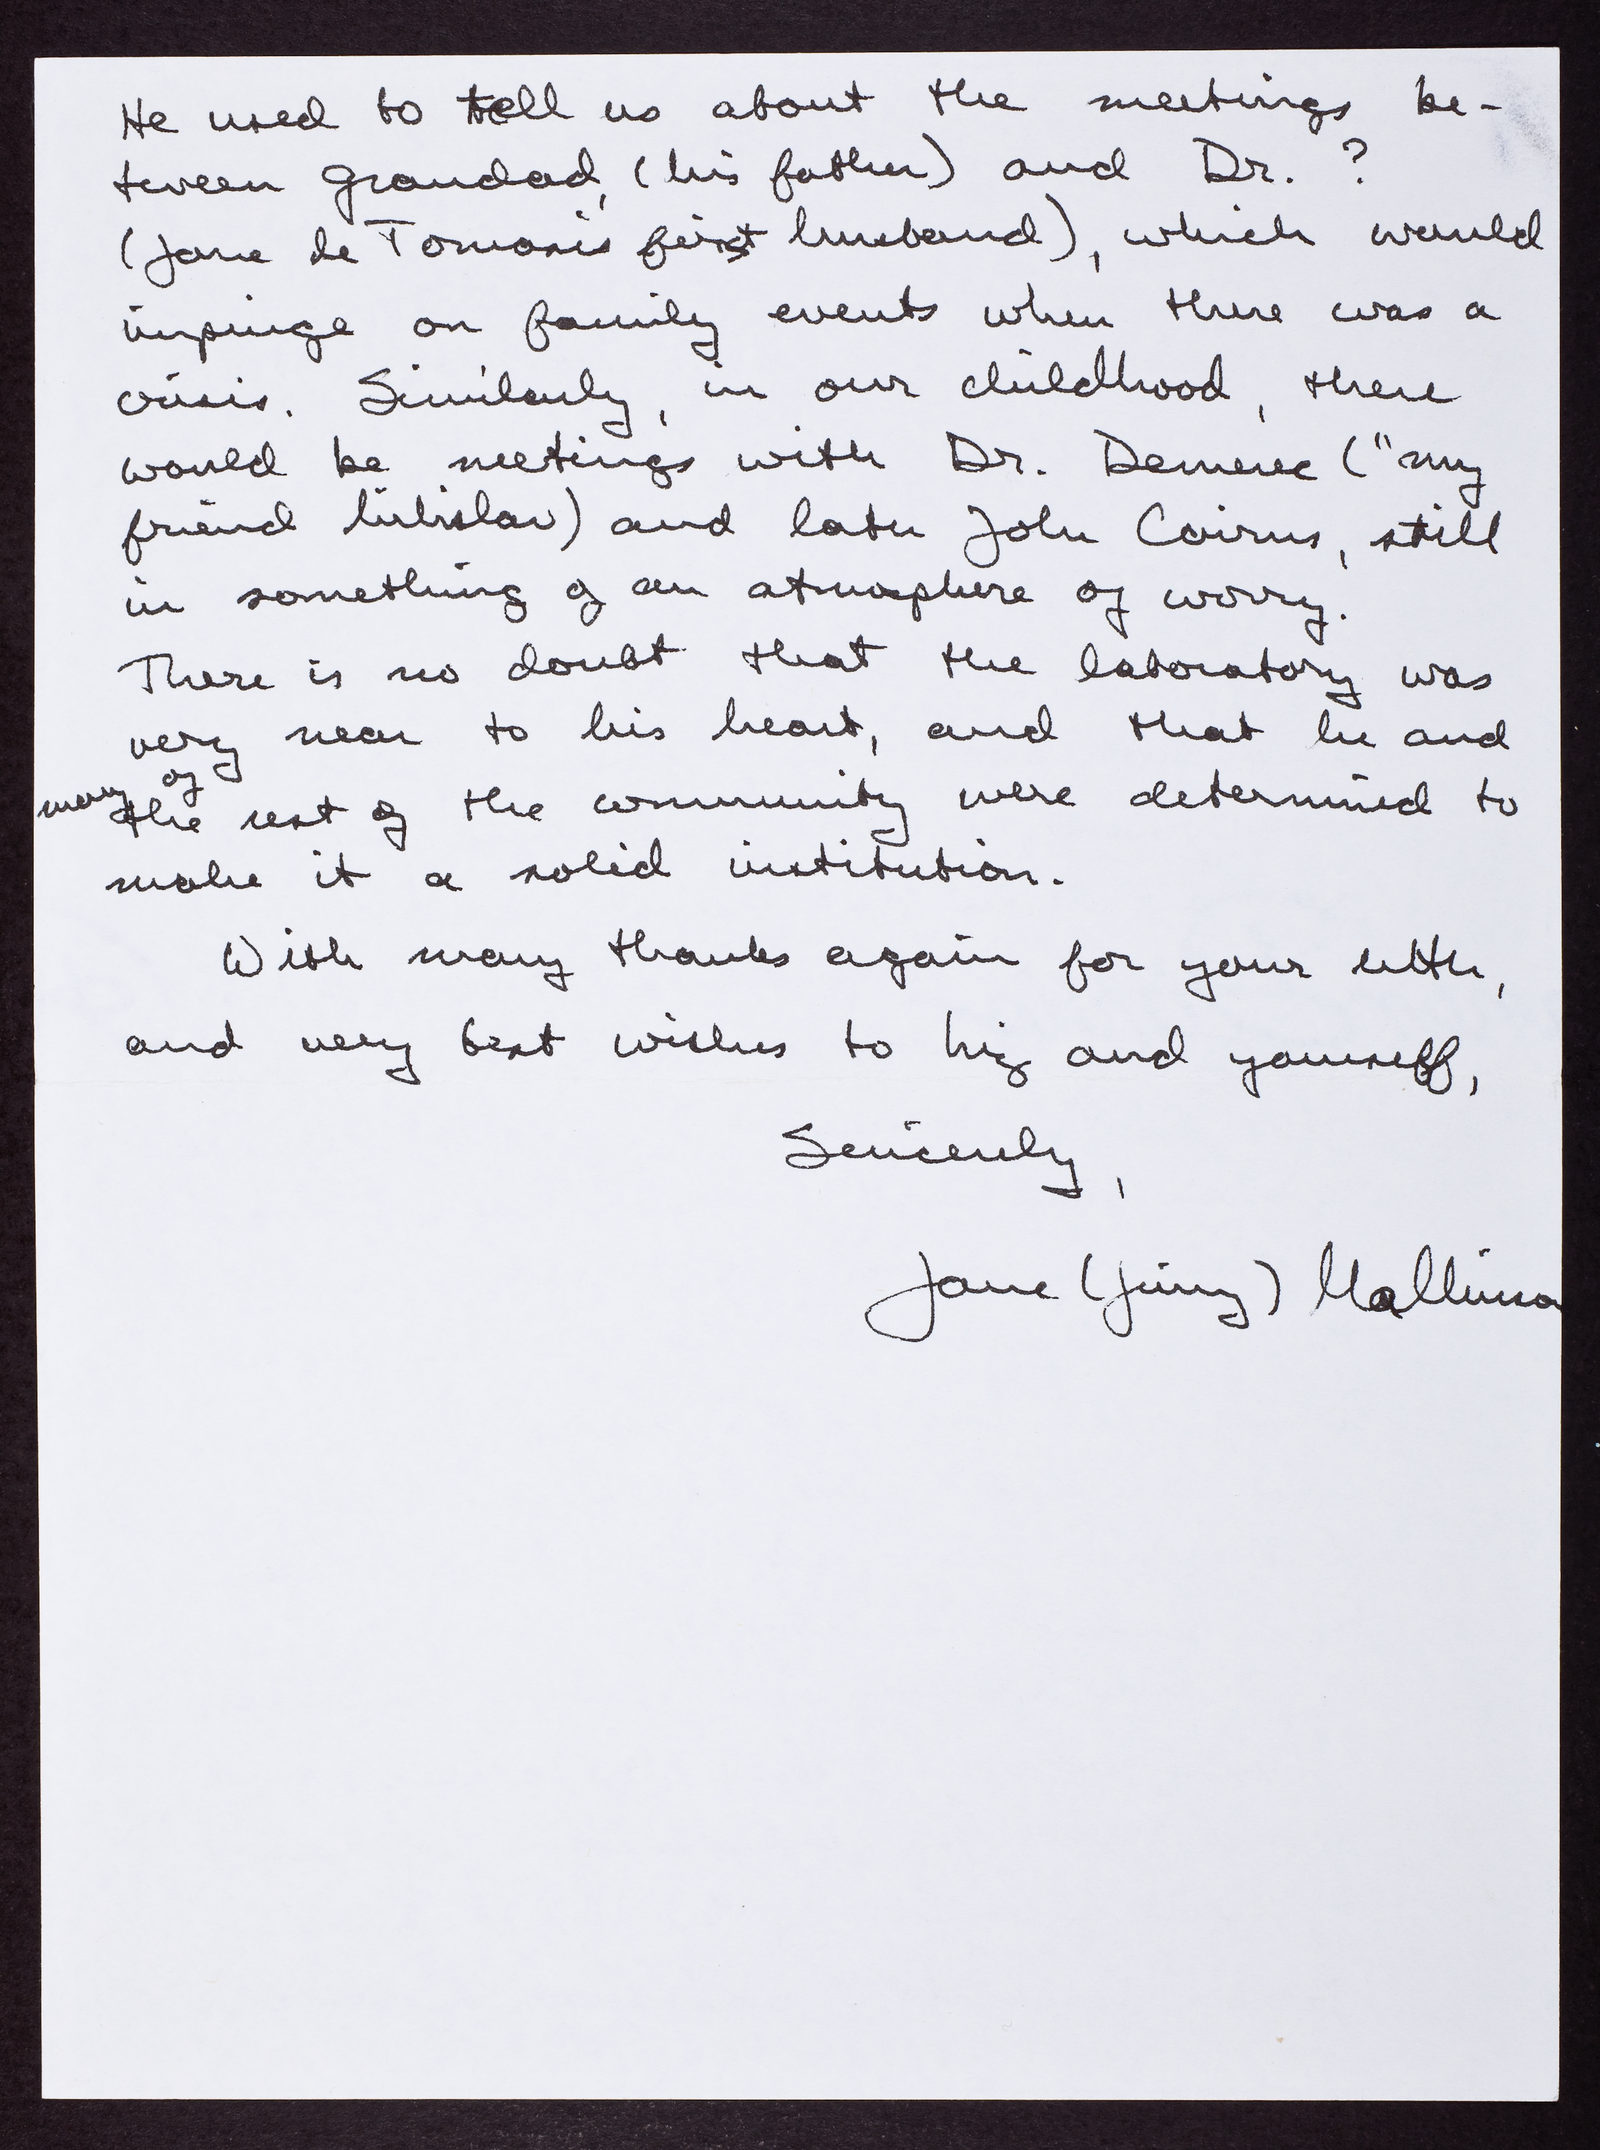 He used to tell us about the meetings be-
tween grandad, (his father) and Dr. ?
(Jane de Tomasi's first husband), which would
impinge on family events when there was a
crisis. Similarly, in our childhood, there
would be meetings with Dr. Demerec ("my
friend Milislav) and later John Cairns, still
in something of an atmosphere of worry.
There is no doubt that the laboratory was
very near to his heart, and that he and
many of
the rest of the community were determined to
make it a solid institution.
With many thanks again for your letter,
and very best wishes to Liz and yourself,
Sincerely,
Jane (Jinny)